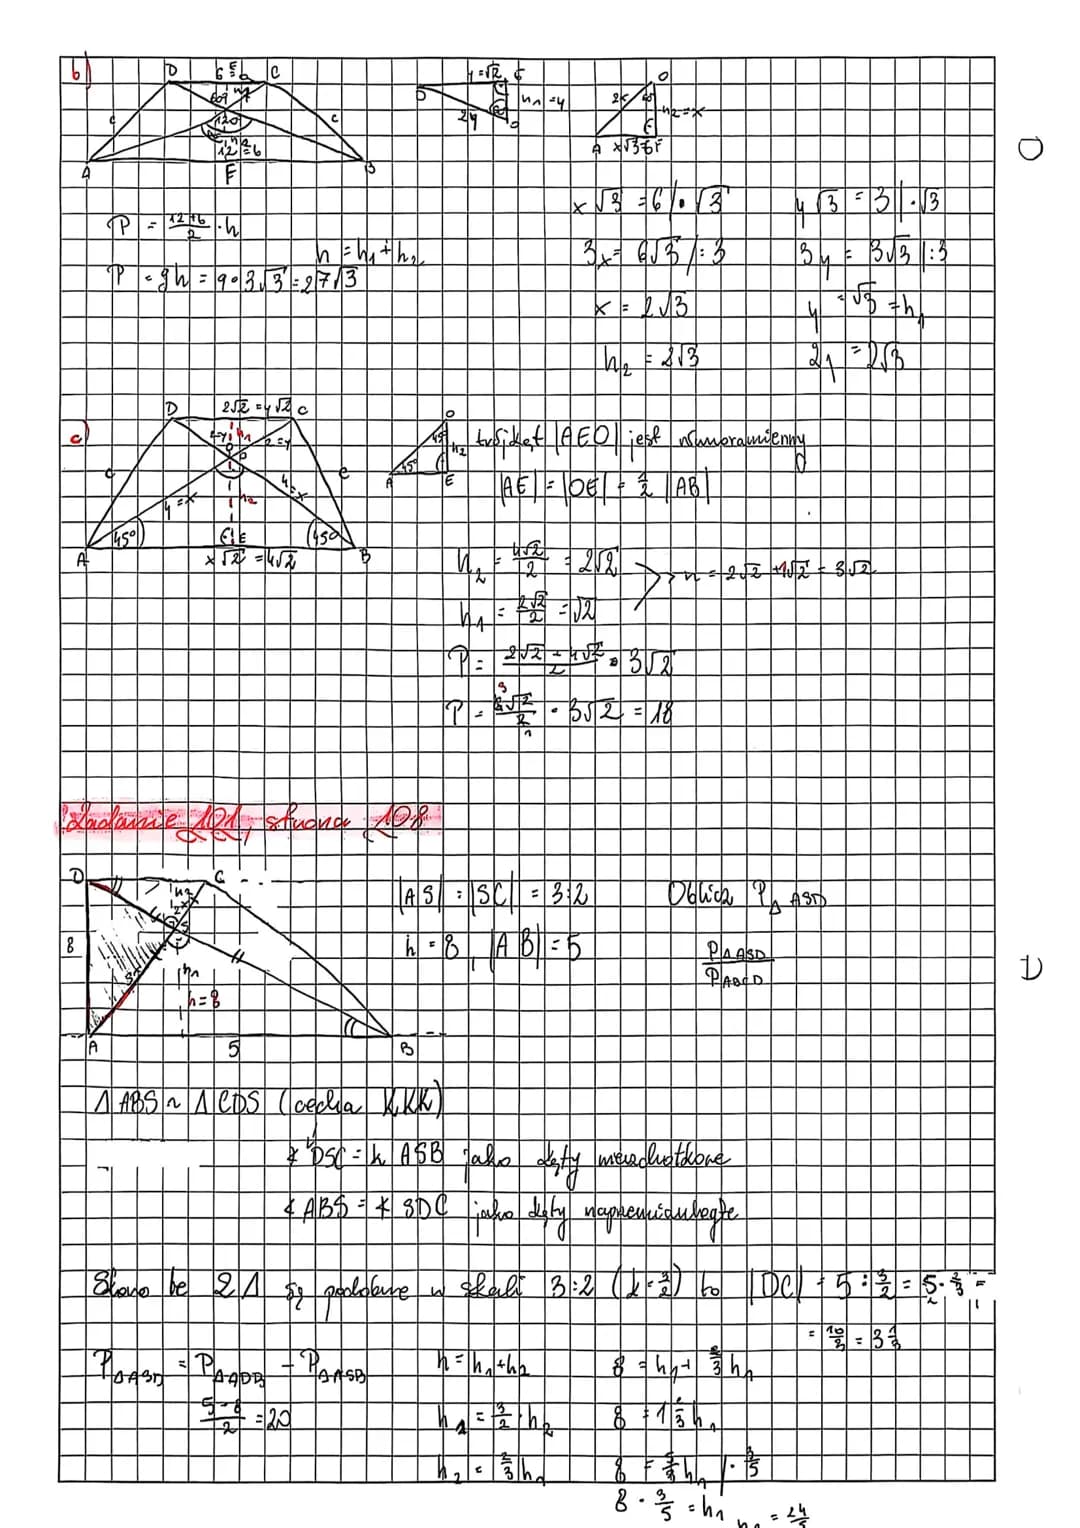 b)
D 6 C
60°
120°
12
A F B
D
2y
h₁ = y
O
2x
h₂ = x
A x√3 = 6 F
P = 12+6/2 · h
h = h₁ + h₂
P = 9h = 9 · 3√3 = 27√3
x√3 = 6 /· √3
y√3 = 3 |· √3
3x = 6√3 /: 3
3y = 3√3 |: 3
x = 2√3
y = √3 = h₁
h₂ = 2√3
2y = 2√3
c)
D 2√2 = y√2 C
2=y h₁ 2=y
4=x 4=x
h₂
45° E 45°
A x√2 = 4√2 B
O
45° h₂
45°
A E
trójkąt |AEO| jest równoramienny
|AE| = |OE| = 1/2 |AB|
h₂ = 4√2/2 = 2√2
h = 2√2 + 1√2 = 3√2
h₁ = 2√2/2 = √2
P = 2√2 + 4√2/2 · 3√2
P = 6√2/2 · 3√2 = 18
Zadanie 101, strona 108
D C
h₂
2x
S
8
3x
h₁
h = 8
A 5 B
|AS| : |SC| = 3:2
Oblicz P△ASD
h = 8, |AB| = 5
P△ASD/PABCD
△ABS ~ △CDS (cecha KKK)
∢ DSC = ∢ ASB jako kąty wierzchołkowe
∢ ABS = ∢ SDC jako kąty naprzemianległe
Skoro te 2△ są podobne w skali 3:2 (k=3/2) to |DC| = 5 : 3/2 = 5 · 2/3 =
= 10/3 = 3 1/3
P△ASD = P△ADB - P△ASB
5·8/2 = 20
h = h₁ + h₂
8 = h₁ + 2/3 h₁
h₁ = 3/2 · h₂
8 = 1 2/3 h₁
h₂ = 2/3 h₁
8 = 5/3 h₁ /· 3/5
8 · 3/5 = h₁
h₁ = 24/5